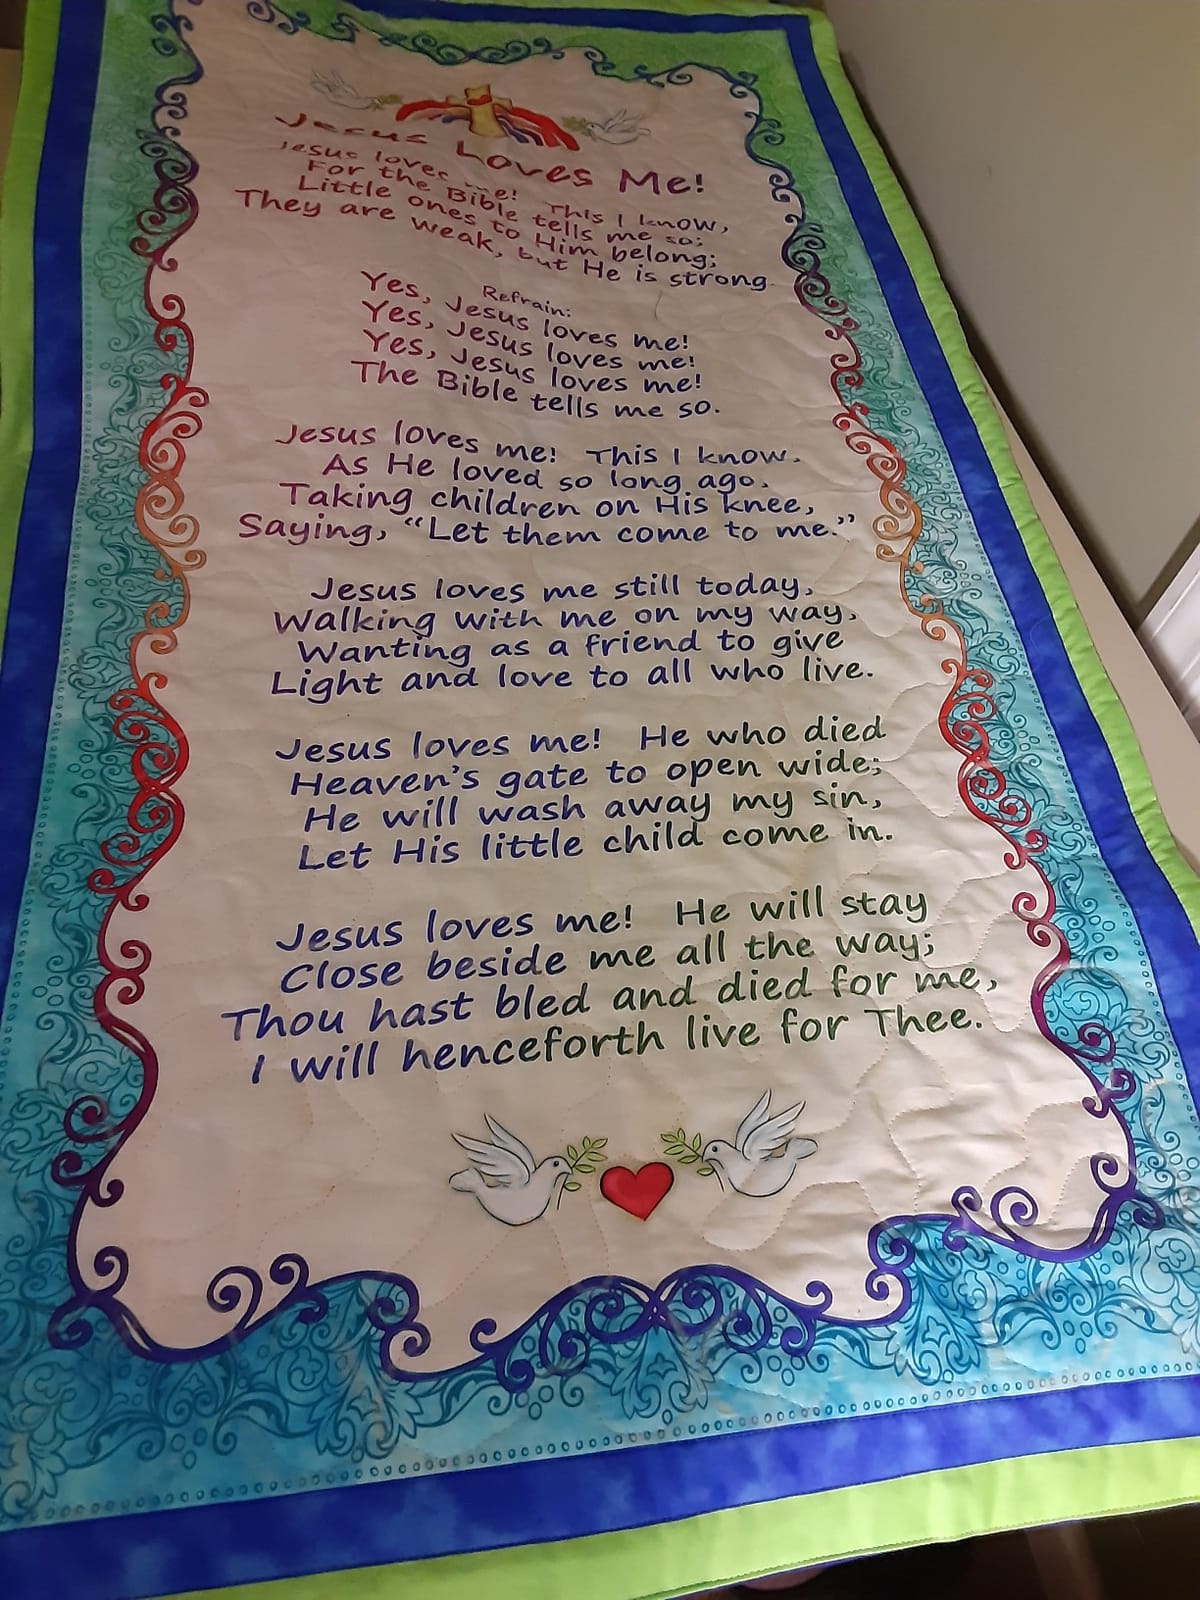 Jesus Loves Me!
Jesus loves me! This I know,
For the Bible tells me so;
Little ones to Him belong;
They are weak, but He is strong
Refrain:
Yes, Jesus loves me!
Yes, Jesus loves me!
Yes, Jesus loves me!
The Bible tells me so.
Jesus loves me! This I know.
As He loved so long ago.
Taking children on His knee,
Saying, “Let them come to me.”
Jesus loves me still today,
Walking with me on my way,
Wanting as a friend to give
Light and love to all who live.
Jesus loves me! He who died
Heaven's gate to open wide;
He will wash away my sin,
Let His little child come in.
Jesus loves me! He will stay
Close beside me all the way;
Thou hast bled and died for me,
I will henceforth live for Thee.